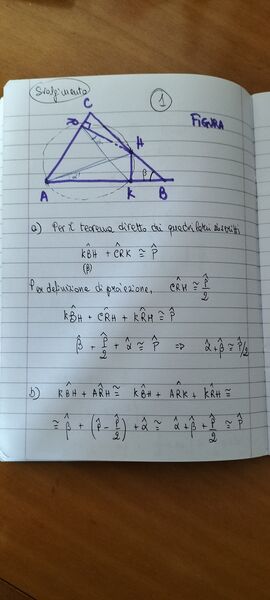 Svolgimento
1
FIGURA
C
R
H
α
α
β
A
K
B
a) Per il teorema diretto dei quadrilateri inscritti
KB̂H + CR̂K ≅ P̂
(β)
Per definizione di proiezione, CR̂H ≅ P̂/2
KB̂H + CR̂H + KR̂H ≅ P̂
β̂ + P̂/2 + α̂ ≅ P̂ ⇒ α̂ + β̂ ≅ P̂/2
b) KB̂H + AR̂H ≅ KB̂H + AR̂K + KR̂H ≅
≅ β̂ + (P̂ - P̂/2) + α̂ ≅ α̂ + β̂ + P̂/2 ≅ P̂